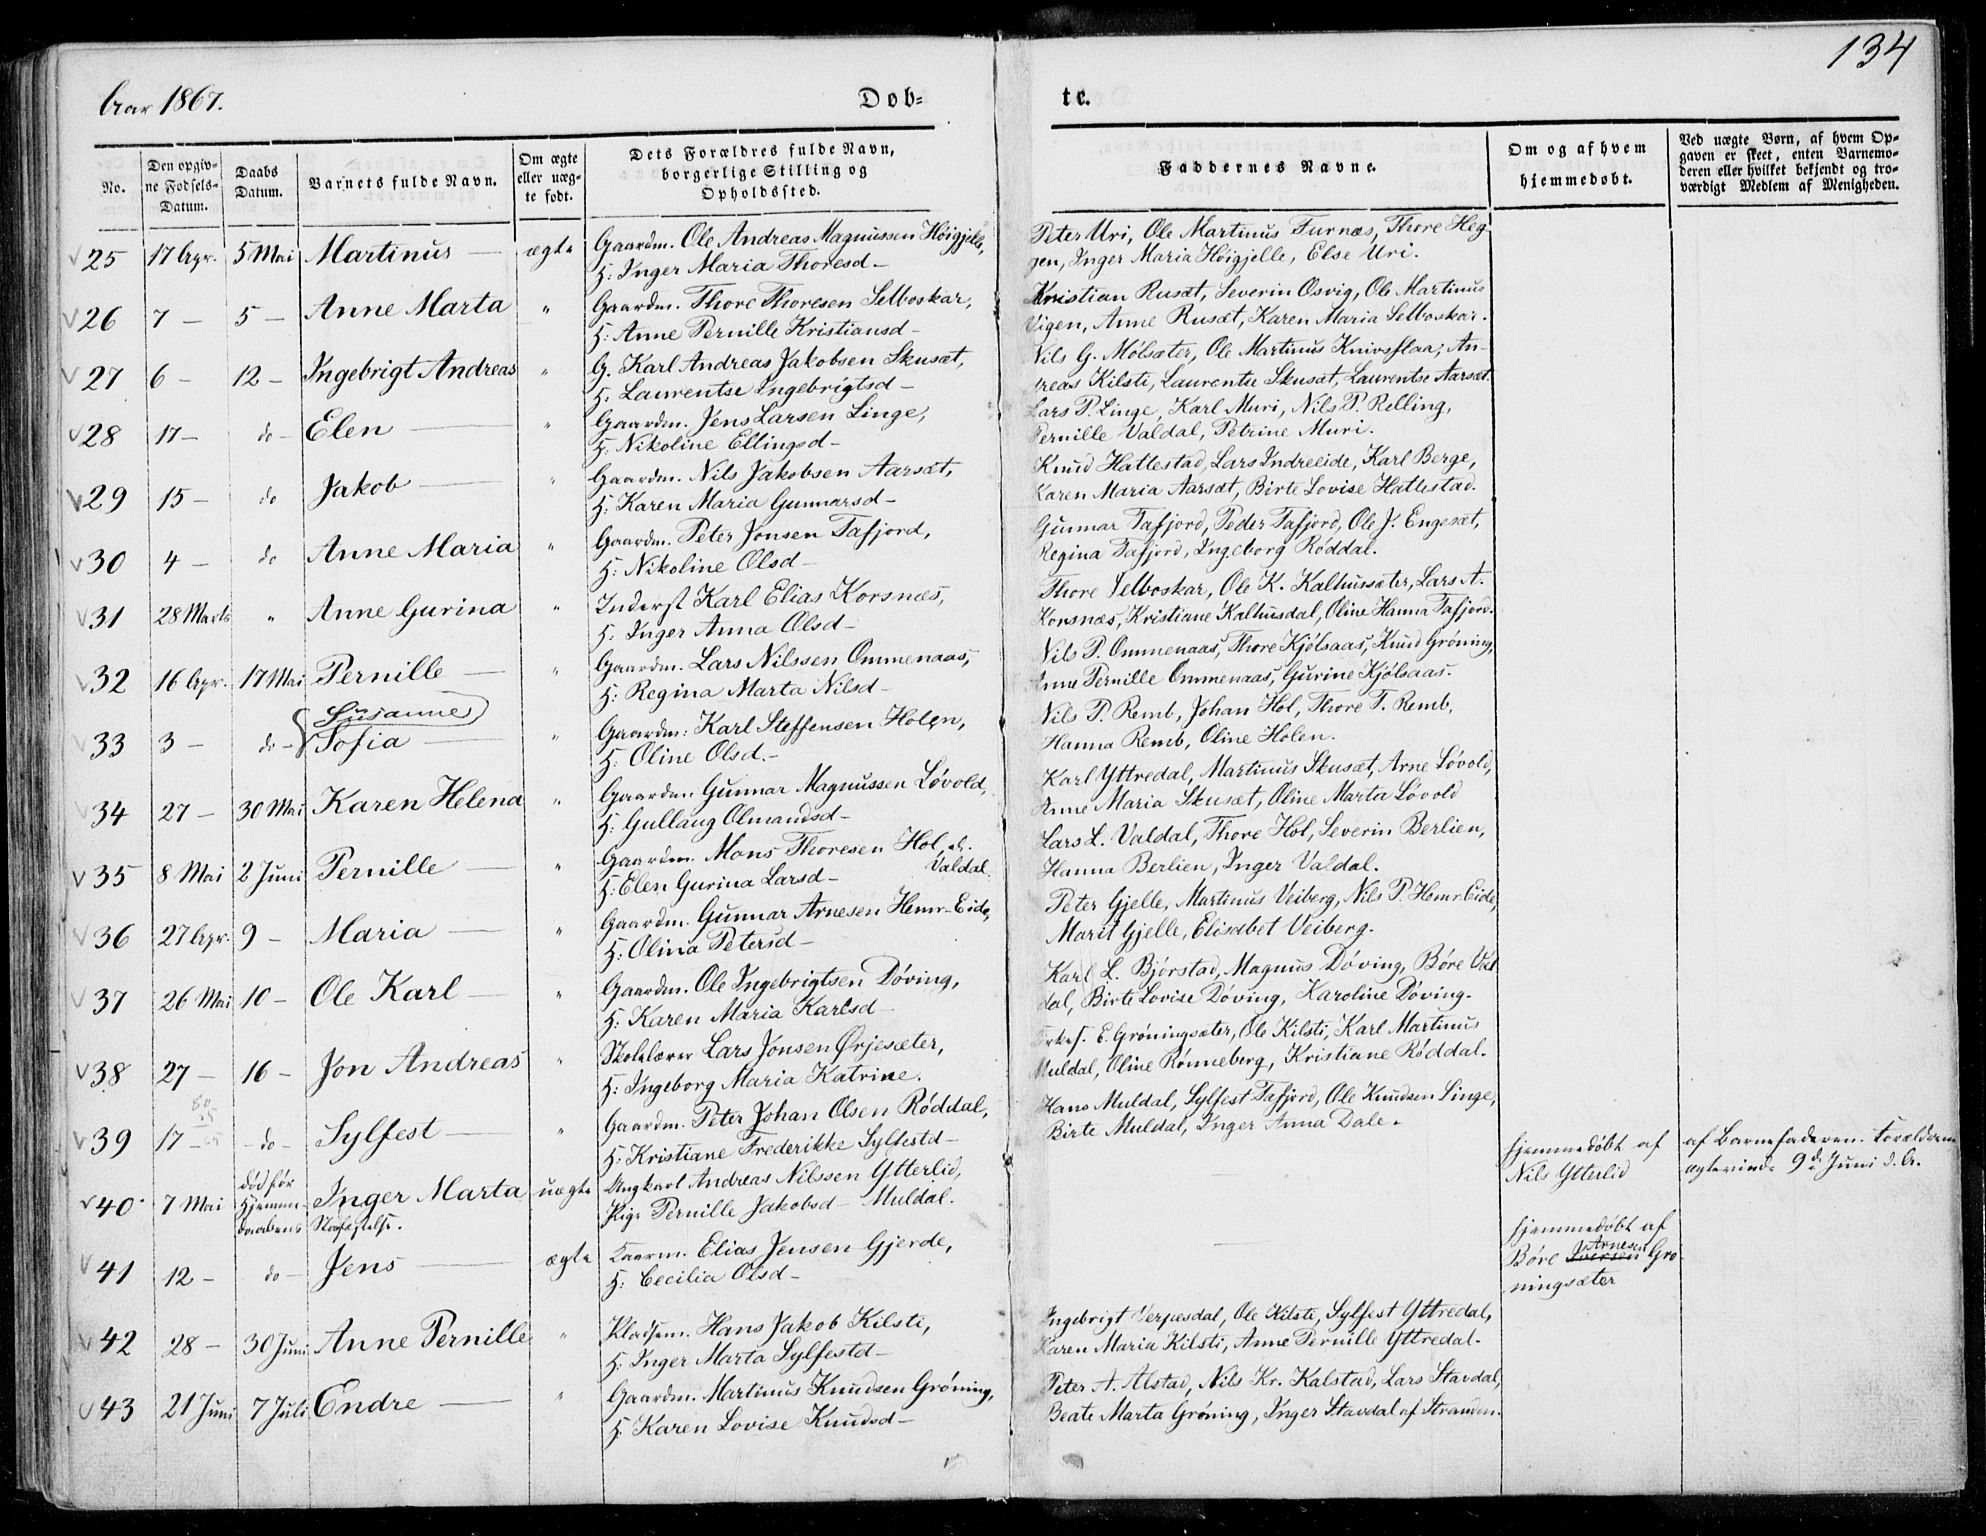 134
Aar 1867.
Døb-
te.
No.
Den opgiv-
ne Fødsels-
Datum.
Daabs
Datum.
Barnets fulde Navn.
Om ægte
eller uæg-
te født.
Dets Forældres fulde Navn,
borgerlige Stilling og
Opholdssted.
Faddernes Navne.
Om og af hvem
hjemmedøbt.
Ved uægte Børn, af hvem Op-
gaven er skeet, enten Barnemo-
deren eller hvilket bekjendt og tro-
værdigt Medlem af Menigheden.
25 17 Apr. 5 Mai Martinus — ægte Gaardm. Ole Andreas Magnussen Höigjelle,
H. Inger Maria Thoresd –
Peter Uri, Ole Martinus Furnæs, Thore Heg-
gen, Inger Maria Höigjelle, Else Uri.
26 7 – 5 – Anne Marta " Gaardm. Thore Thoresen Selboskar,
H: Anne Pernille Kristiansd –
Kristian Rusæt, Severin Osvig, Ole Martinus
Vigen, Anne Rusæt, Karen Maria Selboskar.
27 6 – 12 – Ingebrigt Andreas " G. Karl Andreas Jakobsen Skusæt,
H. Laurentse Ingebrigtsd –
Nils G. Mølsæter, Ole Martinus Knivsflaa, An-
dreas Kilsti, Laurentse Skusæt, Laurentse Aarsæt.
28 17 – do – Elen — " Gaardm. Jens Larsen Linge,
H. Nikoline Ellingsd –
Lars P. Linge, Karl Muri, Nils P. Relling,
Pernille Valdal, Petrine Muri.
29 15 – do Jakob — " Gaardm. Nils Jakobsen Aarsæt,
H: Karen Maria Gunnarsd –
Knud Hattestad, Lars Indreeide, Karl Berge,
Karen Maria Aarsæt, Birte Lovise Hattestad.
30 4 – do Anne Maria " Gaardm. Peter Jonsen Tafjord,
H: Nikoline Olsd –
Gunnar Tafjord, Peder Tafjord, Ole J. Engesæt,
Regina Tafjord, Ingeborg Røddal.
31 28 Marts " Anne Gurina " Inderst Karl Elias Korsnæs,
H: Inger Anna Olsd –
Thore Selboskar, Ole K. Kalhussæter, Lars A.
Korsnæs, Kristiane Kalhusdal, Oline Hanna Tafjord.
32 16 Apr. 17 Mai Pernille — " Gaardm. Lars Nilssen Ommenaas,
H: Regina Marta Nilsd –
Nils P. Ommenaas, Thore Kjølsaas, Knud Grøning,
Anne Pernille Ommenaas, Gurine Kjølsaas.
Susanne
33 3 – do – Sofia — " Gaardm: Karl Steffensen Holen,
H: Oline Olsd. –
Nils P. Remb, Johan Hol, Thore T. Remb,
Hanna Remb, Oline Holen.
34 27 – 30 Mai Karen Helena " Gaardm Gunnar Magnussen Løvold,
H: Gullaug Olmandsd –
Karl Yttredal, Martinus Skusæt, Arne Løvold,
Anne Maria Skusæt, Oline Marta Løvold
35 8 Mai 2 Juni Pernille — " Gaardm. Mons Thoresen Hol,
H: Elen Gurina Larsd – Valdal.
Lars L. Valdal, Thore Hol, Severin Berlien,
Hanna Berlien, Inger Valdal.
36 27 Apr. 9 – Maria — " Gaardm. Gunnar Arnesen Hemr-Eide,
H: Olina Petersd –
Peter Gjelle, Martinus Veiberg, Nils P. Hemr. Eide,
Marit Gjelle, Elisabet Veiberg.
37 26 Mai 10 – Ole Karl — " Gaardm. Ole Ingebrigtsen Døving,
H: Karen Maria Karlsd
Karl L. Bjørstad, Magnus Døving, Børe Val-
dal, Birte Lovise Døving, Karoline Døving.
38 27 – 16 – Jon Andreas " Skolelærer Lars Jonsen Ørjesæter,
H: Ingeborg Maria Katrine.
E. Grøningsæter, Ole Kilsti, Karl Martinus
Muldal, Oline Rønneberg, Kristiane Røddal.
39 17 – do – Sylfest — " Gaardm. Peter Johan Olsen Røddal,
H: Kristiane Frederikke Sylfestd –
Hans Muldal, Sylfest Tafjord, Ole Knudsen Linge,
Birte Muldal, Inger Anna Dale.
40 7 Mai død før
Hjemme-
daabens Stadfæstelse.
Inger Marta uægte Ungkarl Andreas Nilssen Ytterlid,
Pige Pernille Jakobsd – Muldal.
Hjemmedøbt af
Nils Ytterlid
af Barnefaderen. Forældrene
ægteviede 9d Juni d. A.
41 12 – do – Jens — ægte Elias Jensen Gjerde,
H: Cecilia Olsd –
Hjemmedøbt af
Børe Iversen Arnesen Grø-
ningsæter
42 28 – 30 Juni Anne Pernille " Pladsm. Hans Jakob Kilsti,
H: Inger Marta Sylfestd –
Ingebrigt Verpesdal, Ole Kilsti, Sylfest Yttredal,
Karen Maria Kilsti, Anne Pernille Yttredal.
43 21 Juni 7 Juli Endre — " Gaardm. Martinus Knudsen Grøning,
H: Karen Lovise Knudsd –
Peter A. Alstad, Nils Kr. Kalstad, Lars Stavdal,
Beate Marta Grøning, Inger Stavdal af Stranden.